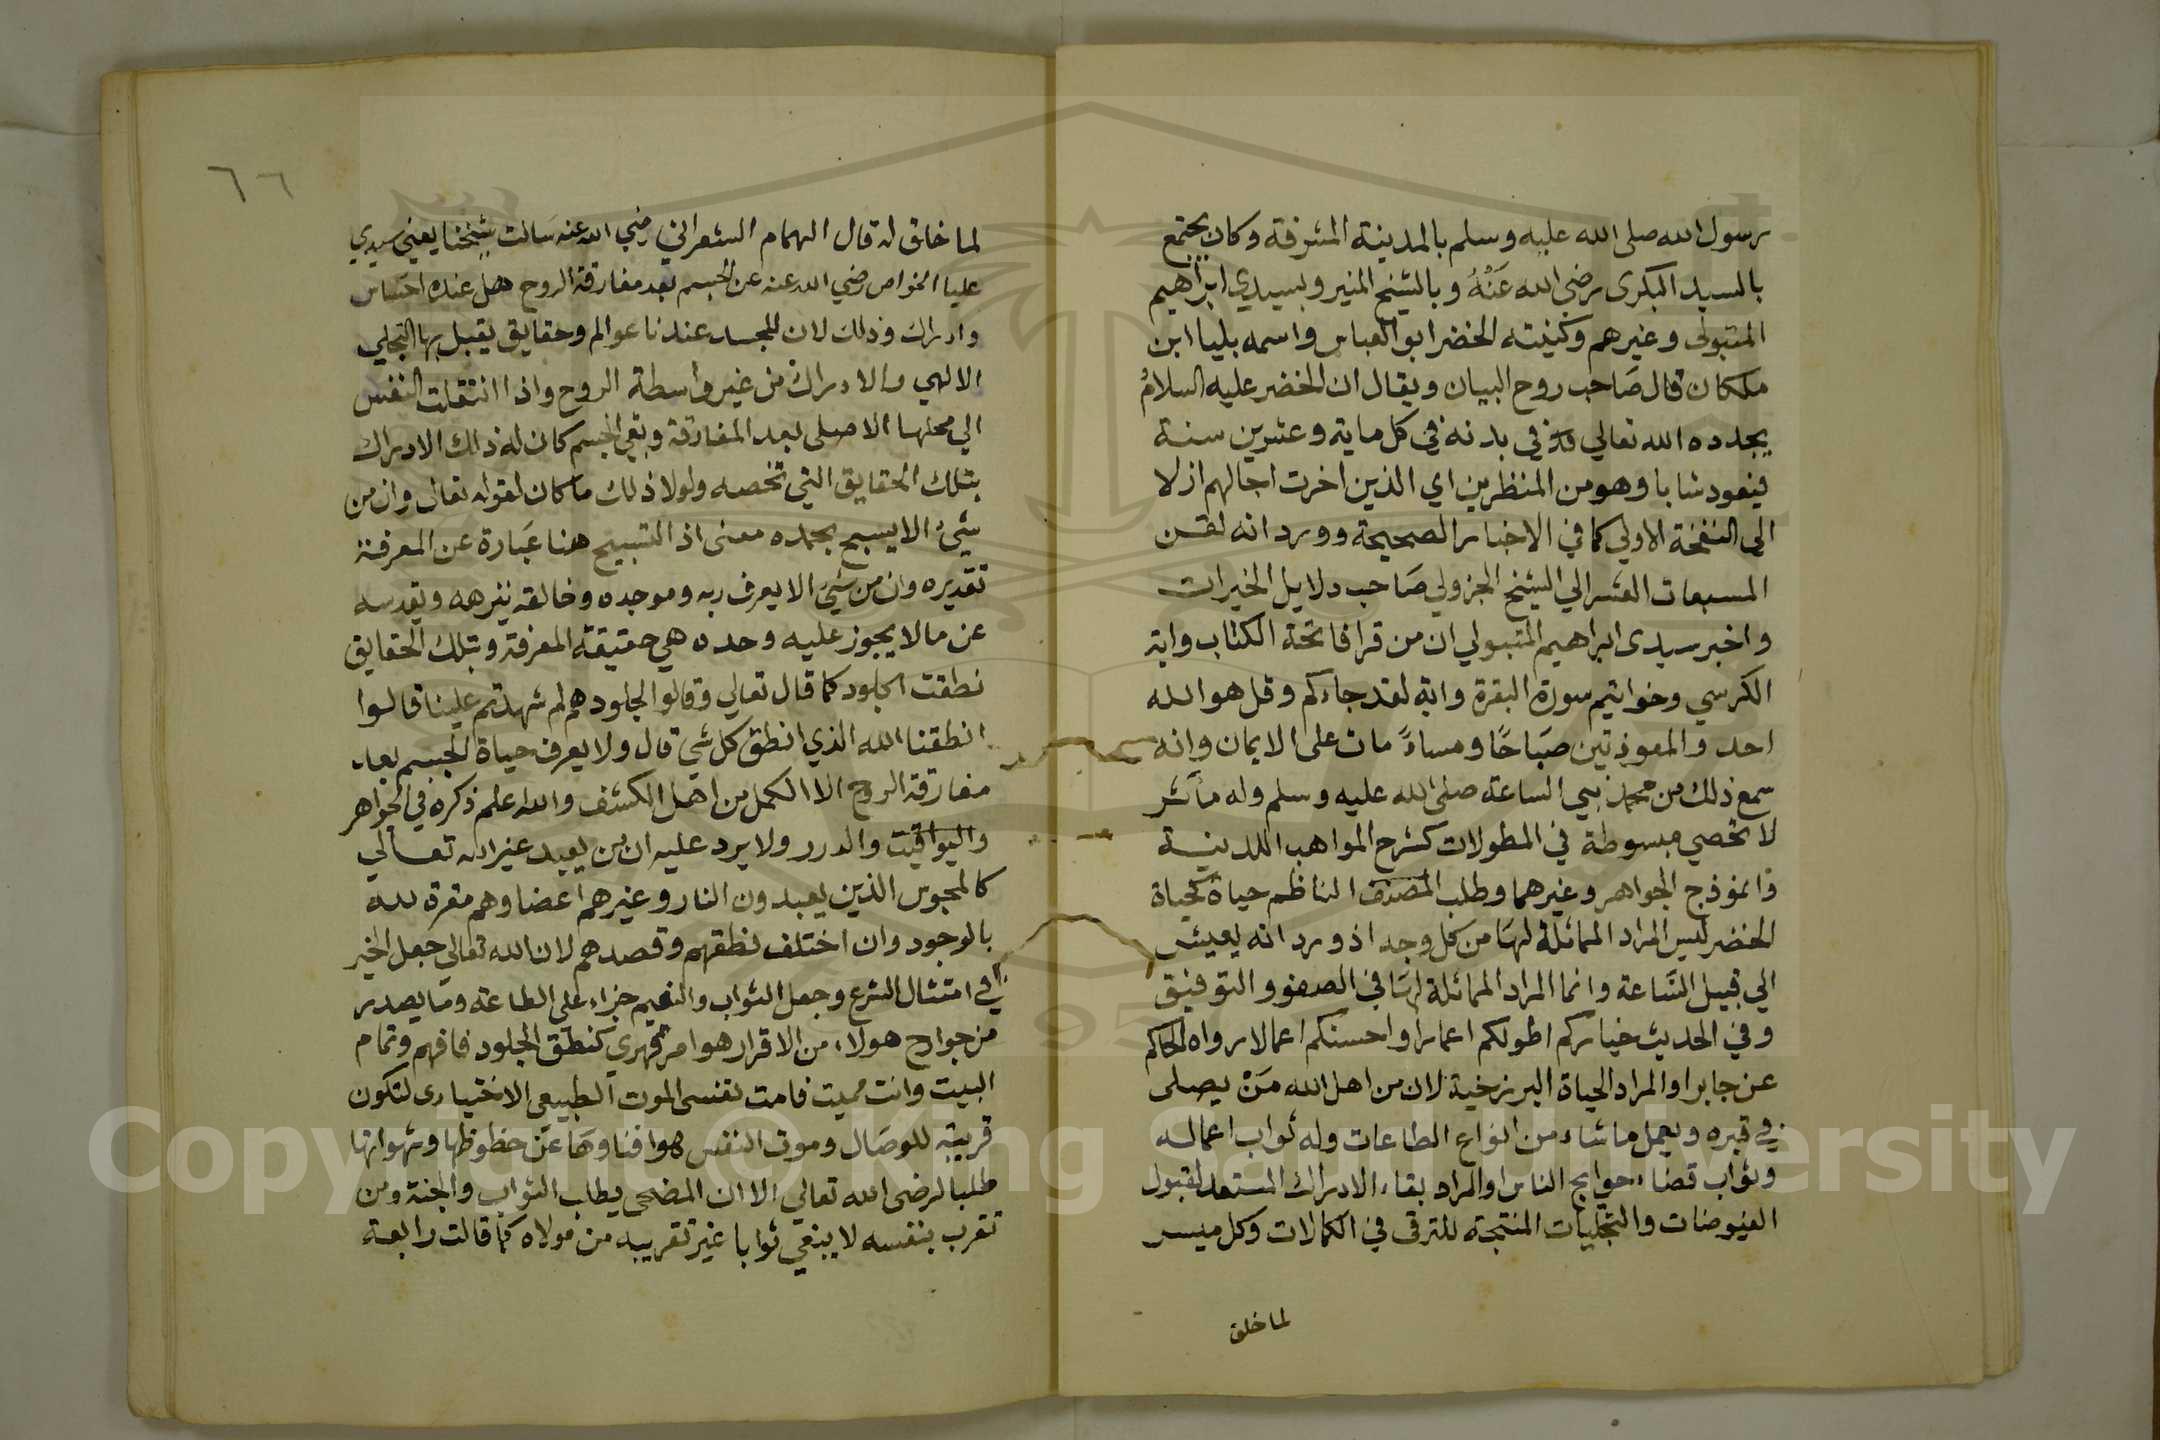 رسول الله صلى الله عليه وسلم بالمدينة المشرفة وكان يجتمع
بالسيد البكرى رضي الله عَنْهُ وبالشيخ المنير وبسيدي ابراهيم
المتبولى وغيرهم وكنيته الخضر ابو العباس واسمه بليا ابن
ملكان قال صَاحب روح البيان ويقال ان الخضر عليه السلامُ
يجدده الله تعالي في بدنه في كل ماية وعشرين سنة
فيعود شابا وهو من المنظرين اي الذين اخرت اجالهم ازلا
الى النفخة الاولي كما في الاخبار الصحيحة وورد انه لقن
المسبعات العشر الي الشيخ الجزولي صَاحب دلايل الخيرات
واخبر سيدى ابراهيم المتبولي ان من قرا فاتحة الكتاب واية
الكرسي وخواتيم سورة البقرة واية لقد جاءكم وقل هو الله
احد والمعوذتين صَبَاحًا ومساءً مات على الايمان وانه
سمع ذلك من محمد نبي الساعة صلى الله عليه وسلم وله مآثر
لا تحصي مبسوطة في المطولات كشرح المواهب اللدنية
وانموذج الجواهر وغيرهما وطلب المصنف الناظم حياة كحياة
الخضر ليس المراد المماثلة لهَا من كل وجه اذ ورد انه يعيش
الي قبيل السَّاعة وانما المراد المماثلة لهَا في الصفو والتوفيق
وفي الحديث خياركم اطولكم اعمارا واحسنكم اعمالا رواه الحاكم
عن جابر او المراد الحياة البرزخية لان من اهل الله مَنْ يصلى
في قبره ويعمل ما شاء من انواع الطاعات وله ثواب اعماله
وثواب قضاء حوايج الناس او المراد بقاء الادراك المستعد لقبول
الفيوضات والتجليات المنتجة للترقى في الكمالات وكل ميسر
لما خلق
٦٦
لما خلق له قال الهمام الشعراني رضي الله عنه سَالت شيخنا يعني سيدي
عليا الخواص رضي الله عنه عن الجسم بعد مفارقة الروح هل عنده احسَاس
وادراك وذلك لان للجسد عندنا عوالم وحقايق يقبل بها التجلي
الالهي والادراك من غير واسطة الروح واذا انتقلت النفس
الي محلها الاصلى بعد المفارقة وبقي الجسم كان له ذلك الادراك
بتلك الحقايق التي تخصه ولولا ذلك ما كان لقوله تعالى وان من
شيء الا يسبح بحمده معنى اذ التسبيح هنا عبَارة عن المعرفة
تقديره وان من شيء الا يعرف ربه وموجده وخالقه ينزهه ويقدسه
عن ما لا يجوز عليه وحده هي حقيقة المعرفة وبتلك الحقايق
نطقت الجلود كما قال تعالي وقالوا لجلودهم لم شهدتم علينا قالوا
انطقنا الله الذي انطق كل شي قال ولا يعرف حياة الجسم بعد
مفارقة الروح الا الكمل من اهل الكشف والله اعلم ذكره في الجواهر
واليواقيت والدرر ولا يرد عليه ان من يعبد غير الله تعالي
كالمجوس الذين يعبدون النار وغيرهم اعضاوهم مقرة لله
بالوجود وان اختلف نطقهم وقصدهم لان الله تعالي جعل الخير
في امتثال الشرع وجعل الثواب والنعيم جزاء على الطاعة وما يصدر
من جوارح هولاء من الاقرار هو امر قهري كنطق الجلود فافهم وتمام
البيت وانت مميت فامت نفسى الموت الطبيعى الاختيارى لتكون
قريبة للوصَال وموت النفس هو افناوهَا عن حظوظها وشهواتها
طلبا لرضى الله تعالي الا ان المضحى يطلب الثواب والجنة ومن
تقرب بنفسه لا يبغي ثوابا غير تقريبه من مولاه كما قالت رابعة
Copyright © King Saud University